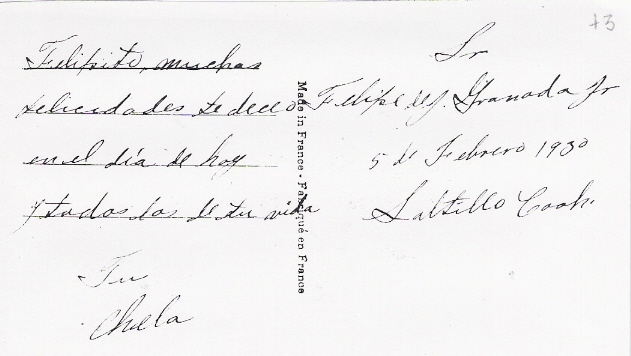 Felipito, muchas
felicidades te deceo
en el día de hoy
y todos los de tu vida
Tu
Chela
Made in France - Fabriqué en France
Sr
Felipe de J. Granada Jr
5 de Febrero 1930
Saltillo Coah.
+3